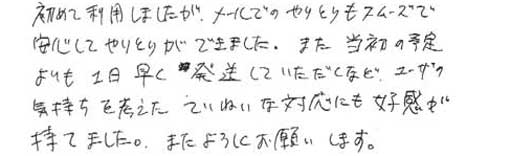 初めて利用しましたが、メールでのやりとりもスムーズで
安心してやりとりができました。また当初の予定
よりも1日早く発送していただくなど、ユーザの
気持ちを考えたていねいな対応にも好感が
持てました。またよろしくお願いします。